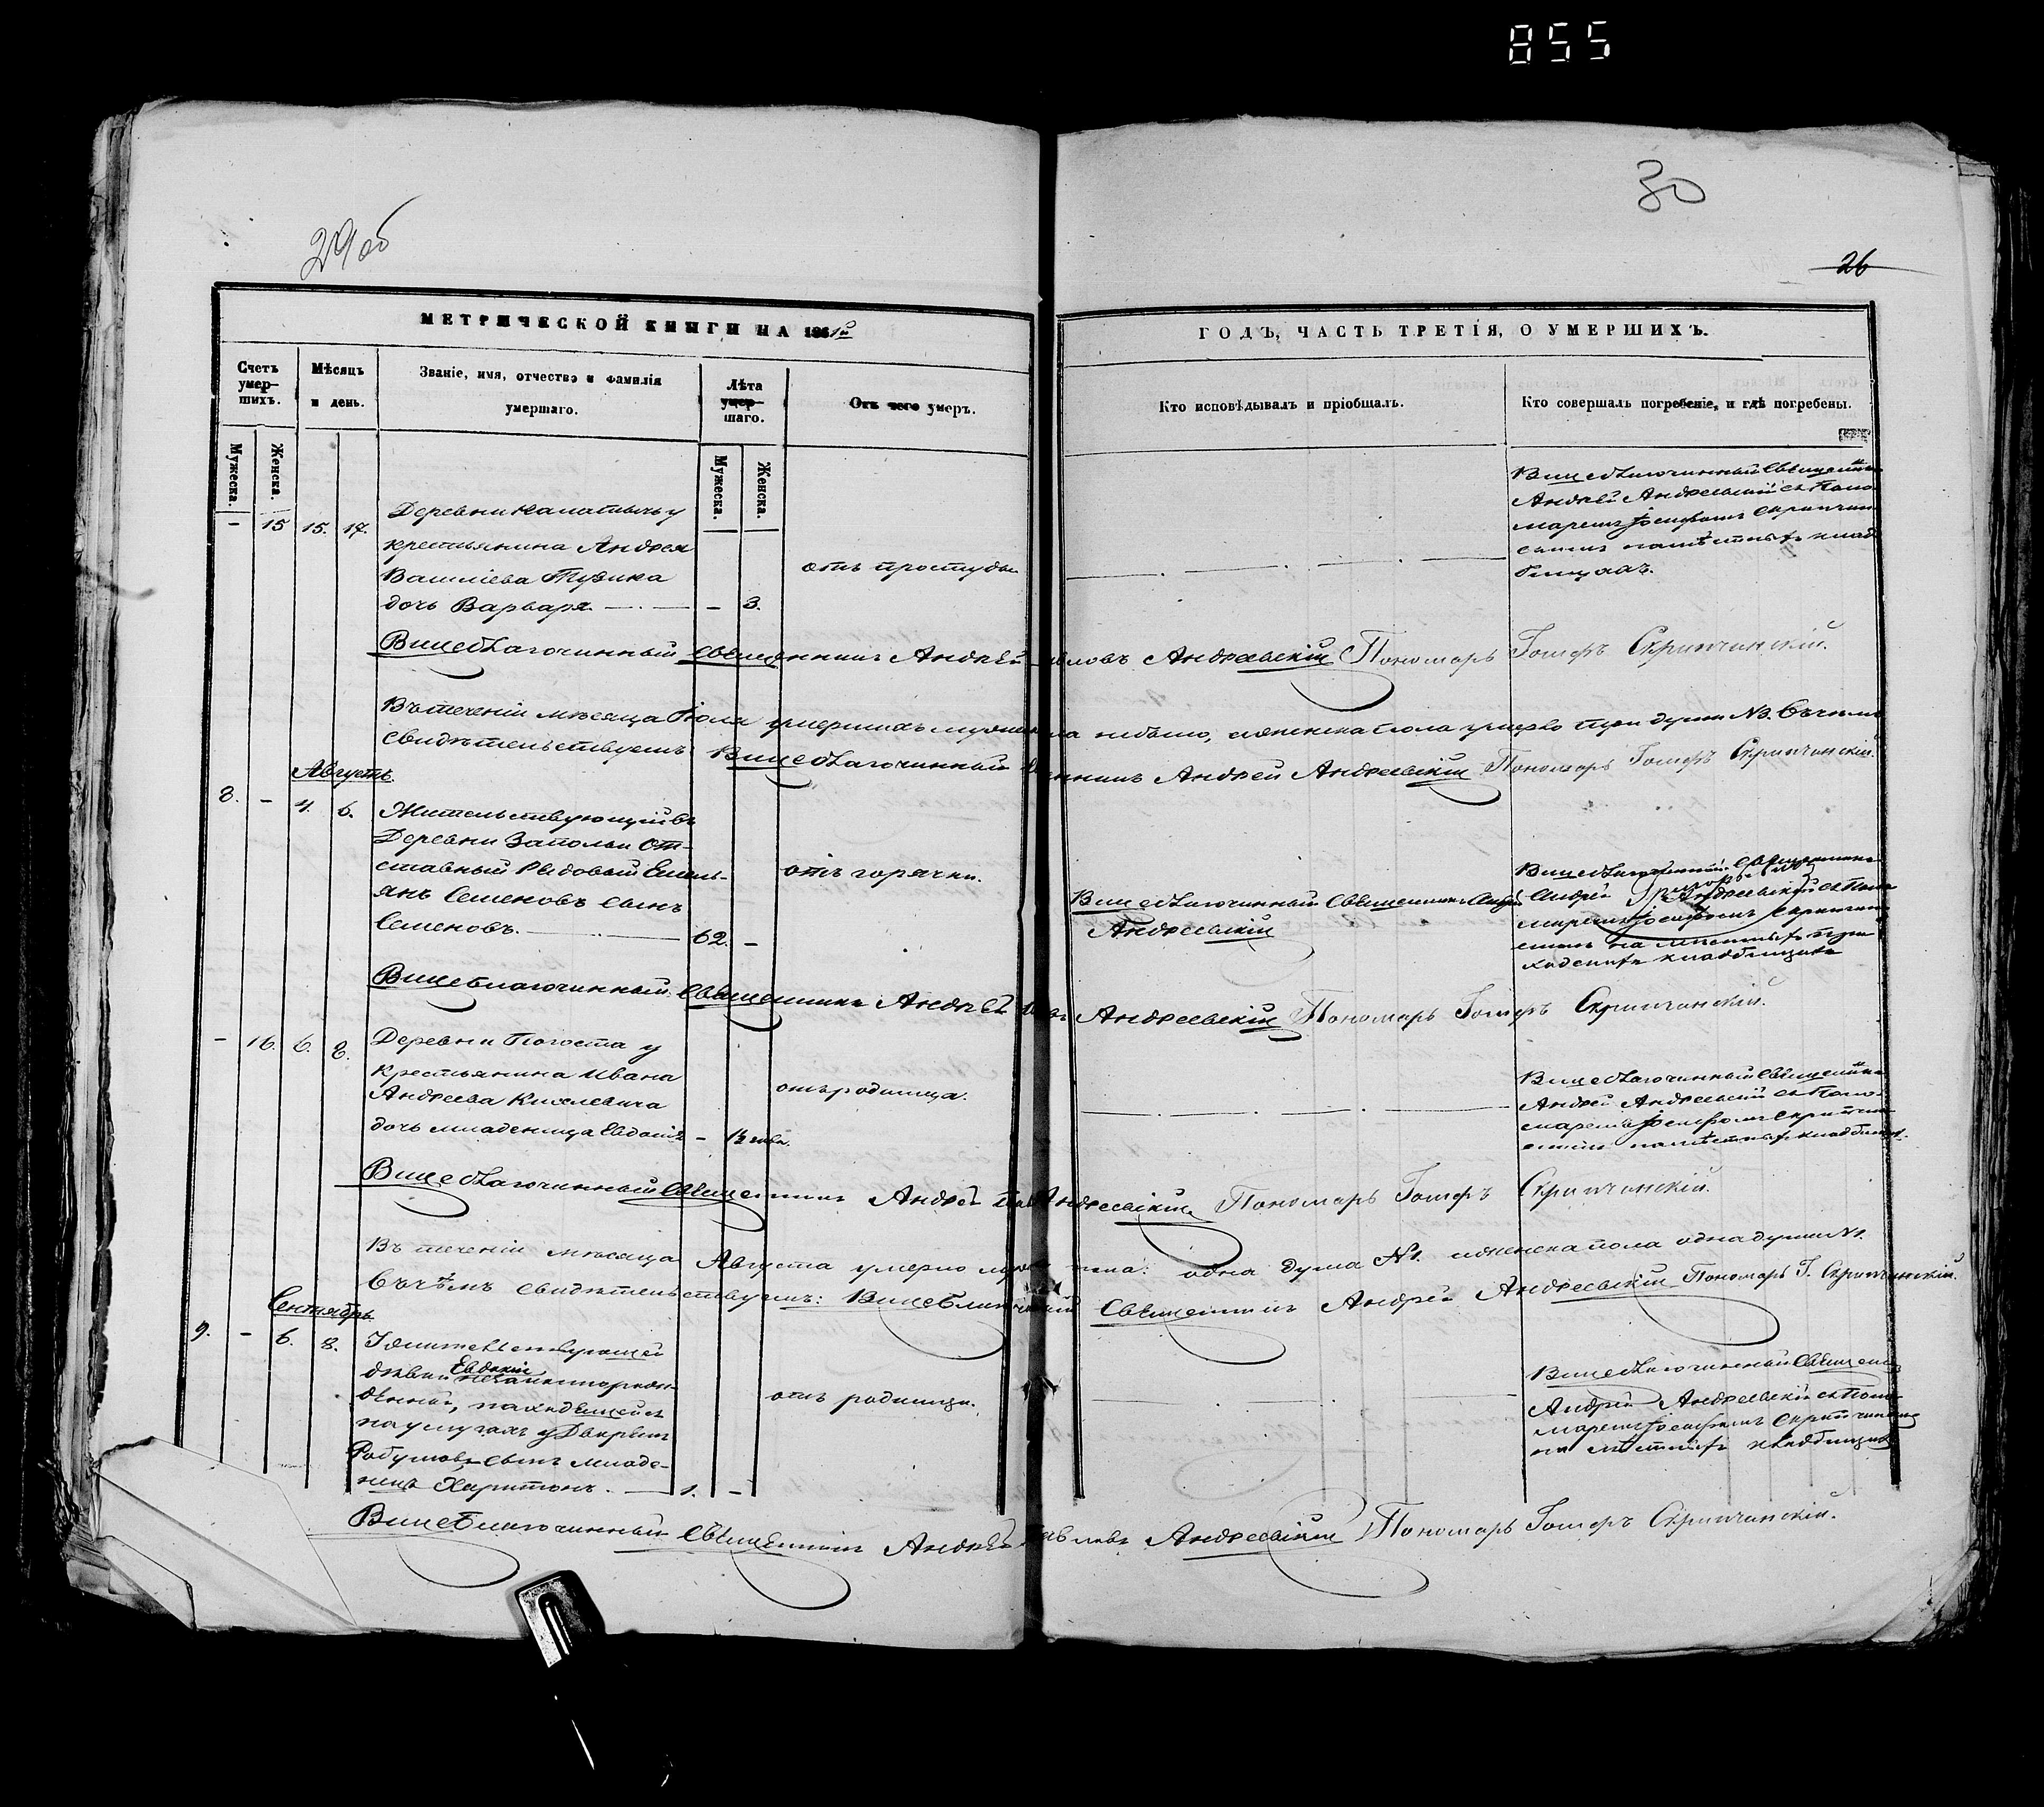 855
29об
30
26
МЕТРИЧЕСКОЙ КНИГИ НА 1861й
ГОДЪ, ЧАСТЬ ТРЕТІЯ, О УМЕРШИХЪ.
Счетъ умер- шихъ.
Мѣсяцъ и день.
Званіе, имя, отчество и фамилія умершаго.
Лѣта умер- шаго.
Отъ чего умеръ.
Кто исповѣдывалъ и пріобщалъ.
Кто совершалъ погребеніе, и гдѣ погребены.
Мужеска.
Женска.
Мужеска.
Женска.
- 15 15. 17.
Деревни у
крестьянина Андрея
Василіева
дочь Варвара — - 3.
отъ простуды
Вицеблагочинный Священникъ
Андрей Андреевскій съ Поно-
маремъ Іосифомъ Скрипчин-
скимъ на мѣстныхъ клад-
бищахъ.
Вицеблагочинный Священникъ Андрей Павловъ Андреевскій Пономарь Іосифъ Скрипчинскій.
Въ теченіи мѣсяца Іюля умершихъ небыло, и женска пола умерло три души №3. Въ чемъ
свидѣтельствуемъ Вицеблагочинный Андрей Андреевскій Пономарь Іосифъ Скрипчинскій.
Августъ
8. - 4. 6.
Жительствующій въ
Деревни Заполье От-
ставный Рядовый Емель-
янъ Семеновъ сынъ
Семеновъ. — 62. -
отъ горячки.
Вицеблагочинный Священникъ Андрей
Андреевскій
Вицеблагочинный Священникъ
Андрей Андреевскій съ Поно-
маремъ Іосифомъ Скрипчин-
скимъ на мѣстныхъ при-
ходскихъ кладбищахъ
Вицеблагочинный Священникъ Андрей Андреевскій Пономарь Іосифъ Скрипчинскій.
- 16. 6. 8.
Деревни Погоста у
крестьянина Ивана
Андреева Киселевича
дочь младеница Евдокія -
отъ родимца.
Вицеблагочинный Священникъ
Андрей Андреевскій съ Поно-
маремъ Іосифомъ Скрипчин-
скимъ на мѣстныхъ кладбищ.
Вицеблагочинный Священникъ Андрей Андреевскій Пономарь Іосифъ Скрипчинскій.
Въ теченіи мѣсяца Августа умерло муж. пола: одна душа №1. и женска пола одна душа №1.
Въ чѣмъ свидѣтельствуемъ: Вицеблагочинный Священникъ Андрей Андреевскій Пономарь І. Скрипчинскій.
Сентябрь
9. - 6. 8.
жительствующей
дѣвки Евдокіи
находящейся
на услугахъ у
сынъ младе-
нецъ Харитонъ. — 1. -
отъ родимца.
Вицеблагочинный Священникъ
Андрей Андреевскій съ Поно-
маремъ Іосифомъ Скрипчинскимъ
на мѣстныхъ кладбищахъ
Вицеблагочинный Священникъ Андрей Павловъ Андреевскій Пономарь Іосифъ Скрипчинскій.